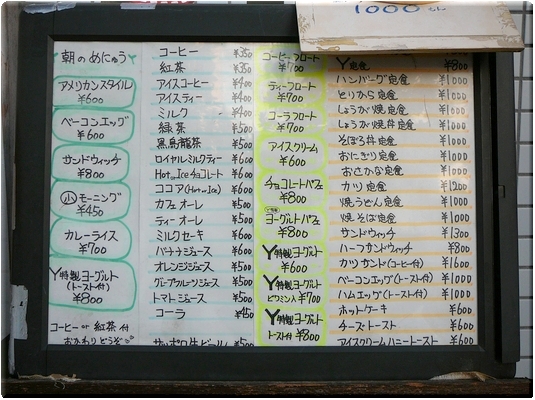 1000
朝のめにゅう
アメリカンスタイル
¥600
ベーコンエッグ
¥600
サンドウィッチ
¥800
小モーニング
¥450
カレーライス
¥700
Y特製ヨーグルト
(トースト付)
¥800
コーヒー or 紅茶 付
おかわりどうぞ
コーヒー ¥350
紅茶 ¥350
アイスコーヒー ¥400
アイスティー ¥400
ミルク ¥400
緑茶 ¥500
黒烏龍茶 ¥500
ロイヤルミルクティー ¥600
Hot or Ice チョコレート ¥600
ココア(Hot or Ice) ¥600
カフェオーレ ¥500
ティーオーレ ¥500
ミルクセーキ ¥600
バナナジュース ¥600
オレンジジュース ¥500
グレープフルーツジュース ¥500
トマトジュース ¥500
コーラ ¥450
サッポロ生ビール ¥500
コーヒーフロート
¥700
ティーフロート
¥700
コーラフロート
¥700
アイスクリーム
¥600
チョコレートパフェ
¥800
ヨーグルトパフェ
¥800
Y特製ヨーグルト
¥600
Y特製ヨーグルト
ビタミン入 ¥700
Y特製ヨーグルト
トースト付 ¥800
Y定食 ¥800
ハンバーグ定食 ¥1000
とりから定食 ¥1000
しょうが焼定食 ¥1000
しょうが焼丼定食 ¥1000
そぼろ丼定食 ¥1000
おにぎり定食 ¥1000
おさかな定食 ¥1000
カツ定食 ¥1200
焼うどん定食 ¥1000
焼そば定食 ¥1000
サンドウィッチ ¥1300
ハーフサンドウィッチ ¥800
カツサンド(コーヒー付) ¥1600
ベーコンエッグ(トースト付) ¥1000
ハムエッグ(トースト付) ¥1000
ホットケーキ ¥600
チーズトースト ¥600
アイスクリームハニートースト ¥600